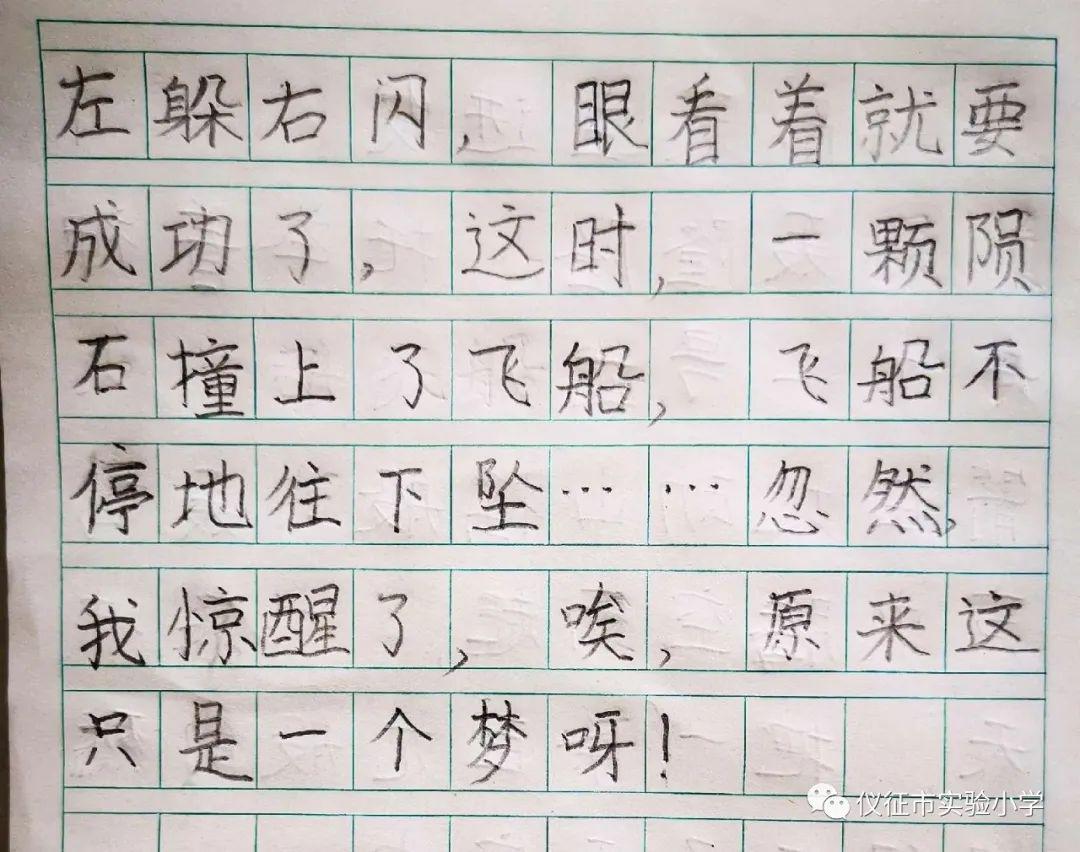 左躲右闪,眼看着就要
成功了,这时,一颗陨
石撞上了飞船,飞船不
停地往下坠……忽然,
我惊醒了,唉,原来这
只是一个梦呀!
仪征市实验小学